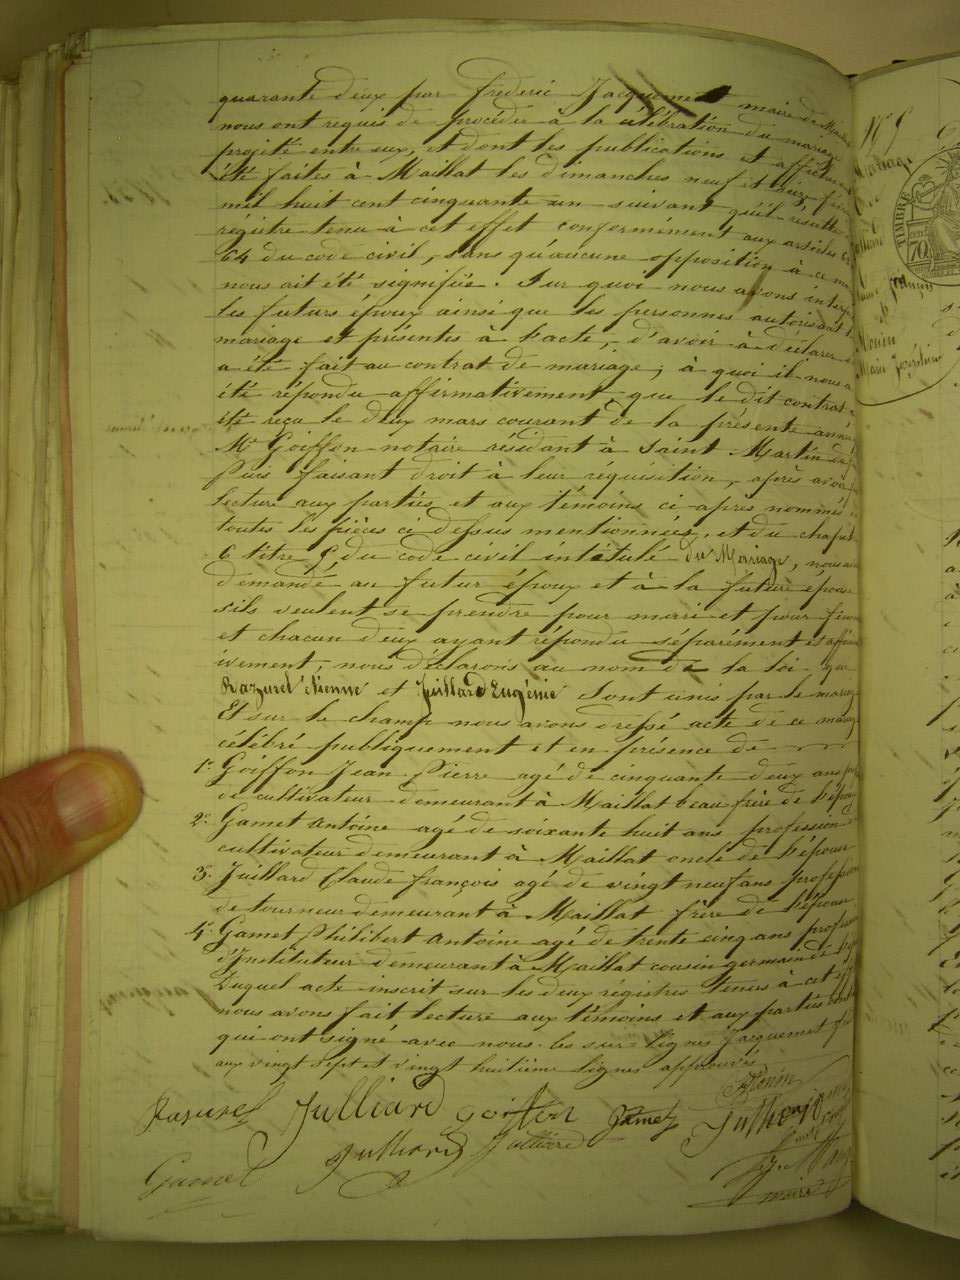 quarante deux par frédéric Jacquemet maire de Maillat
nous ont requis de procéder à la célébration du mariage
projeté entre eux, et dont les publications et affiches
été faites à Maillat les dimanches neuf et
mil huit cent cinquante un suivant qu'il résulte
régistre tenu à cet effet conformément aux articles 63
64 du code civil, sans qu'aucune opposition à ce
nous ait été signifiée. Sur quoi nous avons
les futurs époux ainsi que les personnes autorisant le
mariage et présentes à l'acte, d'avoir à déclarer
a été fait au contrat de mariage; à quoi il nous a
été répondu affirmativement, que le dit contrat a
été reçu le deux mars courant de la présente année
Mᵉ Goiffon notaire résidant à Saint Martin du f
Puis faisant droit à leur réquisition, après avoir
lecture aux parties et aux témoins ci-après nommés
toutes les pièces ci dessus mentionnées, et du chapit
6 titre 5 du code civil intitulé du Mariage, nous
demandé au futur époux et à la future épouse
s'ils veulent se prendre pour mari et pour
et chacun d'eux ayant répondu séparément et affir
ivement, nous déclarons au nom de la loi que
Razurel etienne et Juillard Eugénie sont unis par le mariage
Et sur le champ nous avons dressé acte de ce mariage
célébré publiquement et en présence de
1° Goiffon Jean Pierre agé de cinquante deux ans
de cultivateur demeurant à Maillat beau frère de l'épou
2° Gamet Antoine agé de soixante huit ans profession d
cultivateur demeurant à Maillat oncle de l'épouse
3° Juillard Claude françois agé de vingt neuf ans profession
de tourneur demeurant à Maillat frère de l'épouse
4° Gamet Philibert Antoine agé de trente cinq ans profession
d'Instituteur demeurant à Maillat cousin germain de
Duquel acte inscrit sur les deux régistres tenus à cet
nous avons fait lecture aux témoins et aux parties
qui ont signé avec nous. les sur-lignes Jacquemet
aux vingt sept et vingt huitième lignes approuvés
Monin
Rasurel Julliard goiffon Gamet
Gamet Julliard Julliard
maire
N° 5
Mariage
de
françois
&
Monin
Marie Joséphine
TIMBRE
70